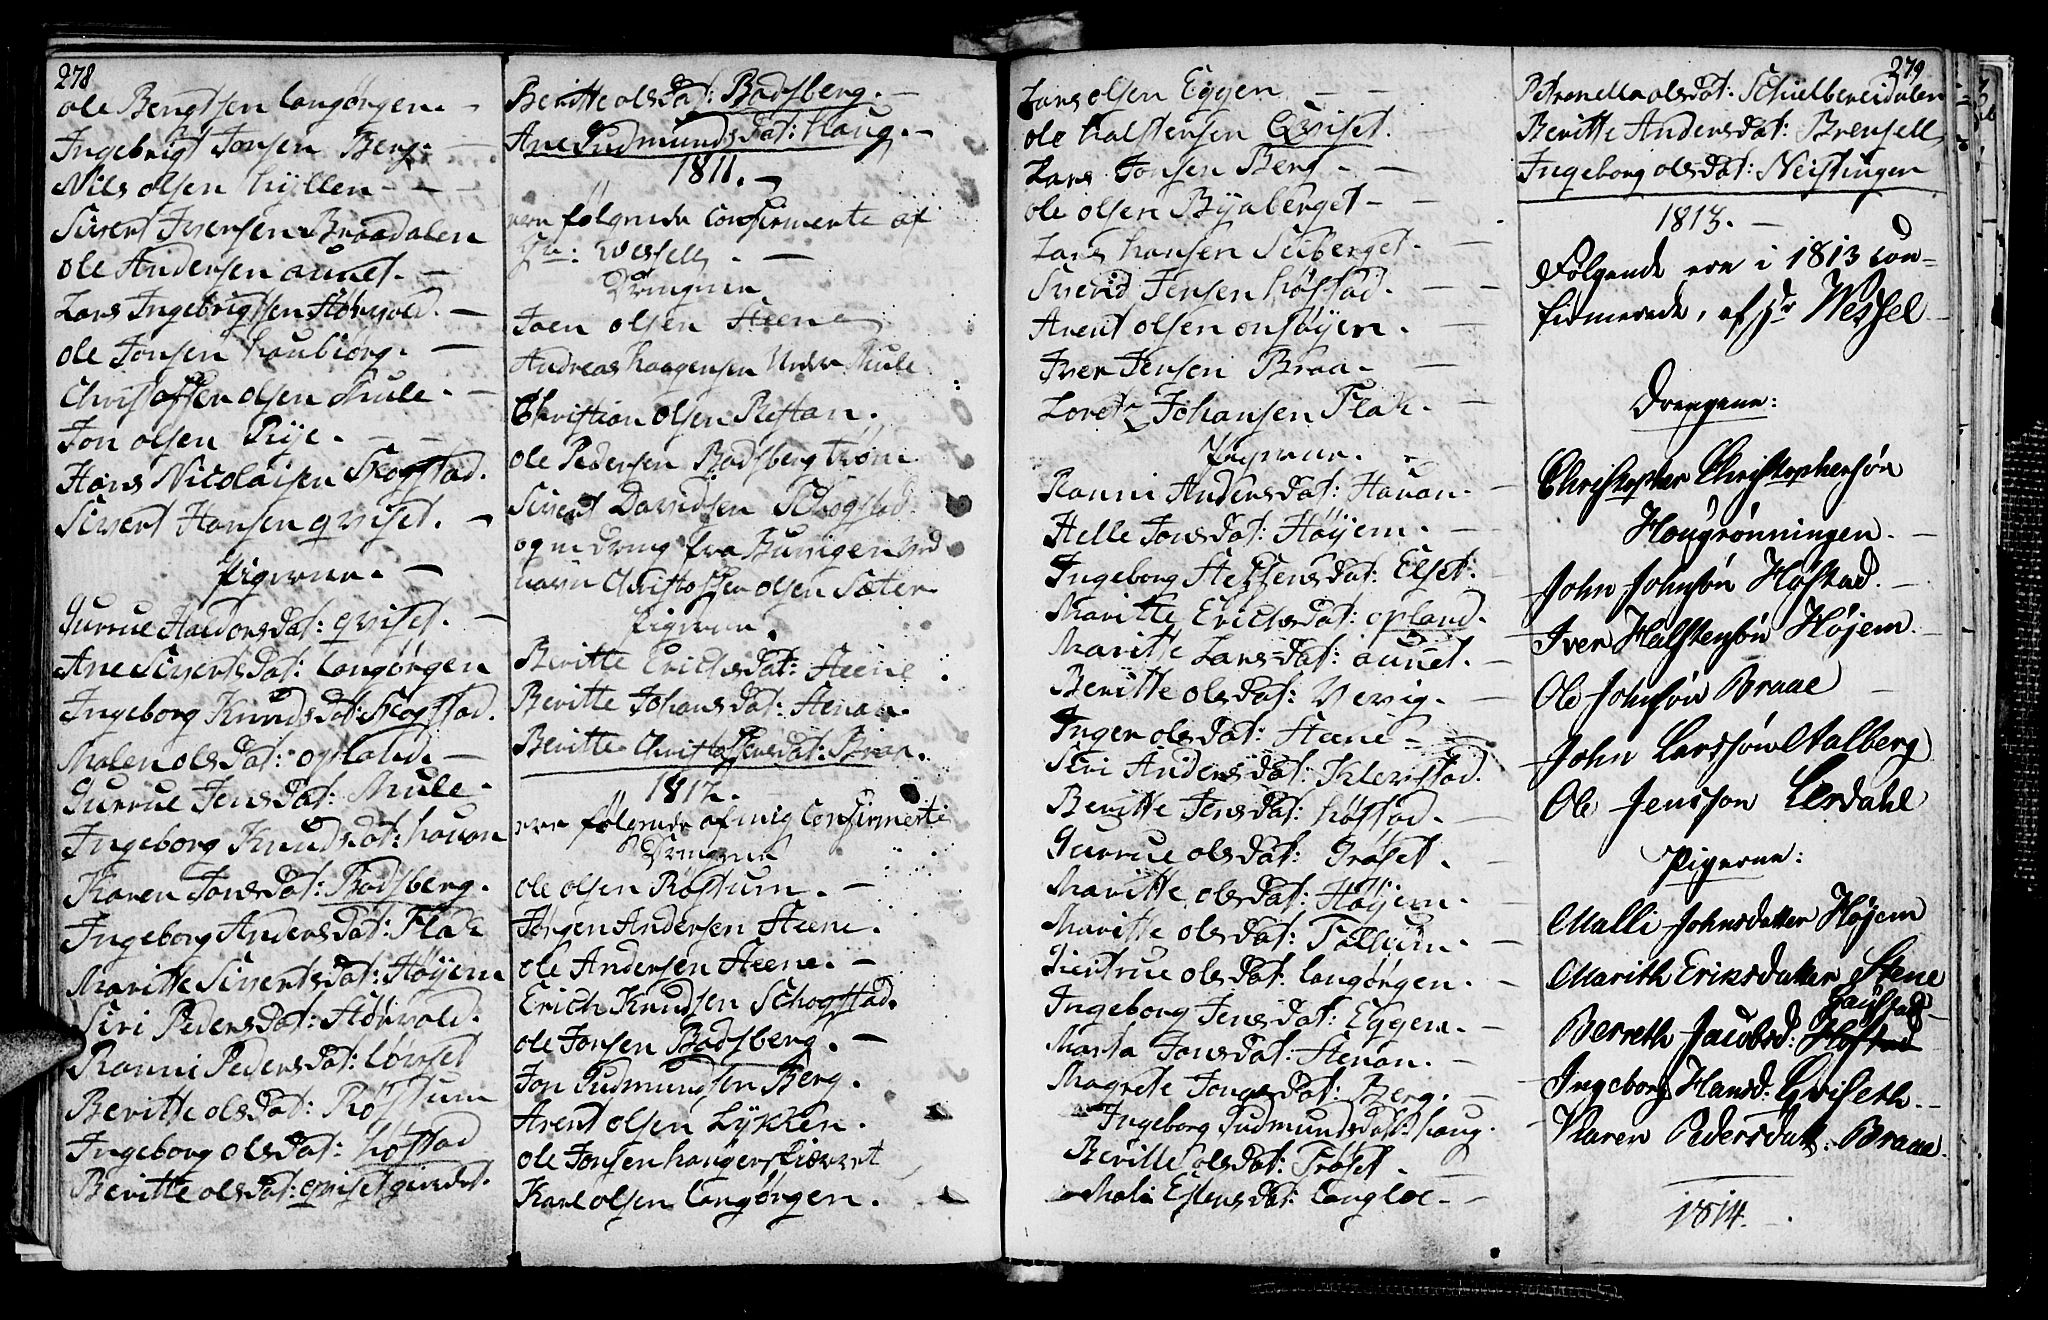 278
Ole Bengtsen Langørgen. -
Ingebrigt Jonsen Berg. -
Nils olsen hyllen - - -
Sivert Iversen Braadalen
Ole Andersen aunet. -
Lars Ingebrigtsen Størvold. -
Ole Jonsen haubiørg. -
Christoffer olsen Mule. -
Jon olsen Rye. - -
Hans Nicolaisen Skogstad.
Sivert Hansen qviset. -
Pigerne. -
Gurrue HaldorsDat: qviset. -
Ane SivertsDat: Langørgen
Ingeborg KnudsDat: Skogstad.
Malen olsDat: opland. -
Gurrue JensDat: Mule.
Ingeborg KnudsDat: hauan
Karen JonsDat: Badsberg.
Ingeborg AndersDat: Flak
Maritte SivertsDat: Høyem
Siri PedersDat: Størvold.
Ranni PedersDat: Lørset
Beritte olsDat: Røstum
Ingeborg olsDat: høstad
Beritte olsDat: qviset
Beritte olsDat: Badsberg. -
Ane GudmundsDat: haug. -
1811. -
ere følgende Confirmerte af
Hr: Wessell. -
Drengene
Joen olsen Steene
Andreas haagensen Mule
Christian olsen Ristan.
Ole Pedersen Badsberg
Sivert Davidsen Schogstad.
og en Dreng fra
navn Christoffer olsen Sæter
Pigerne.
Beritte ErichsDat: Steene
Beritte JohansDat: Stenan.
Beritte ChristoffersDat:
1812.
ere følgende af mig Confirmerte
Drengene
Ole olsen Røstum. -
Jørgen Andersen Steene.
Ole Andersen Steene. -
Erich Knudsen Schogstad.
Ole Jonsen Badsberg. -
Jon Gudmundsen Berg.
Arent olsen Lykken.
Ole Jonsen
Karl olsen Langørgen.
279
Lars olsen Eggen - -
Ole halstensen Qviset.
Lars Jonsen Berg - -
Ole olsen Bynberget - -
Lars hansen Leiberget. -
Sverid Jensen høstad. - -
Arent olsen onsøyen. -
Iver Jensen Braa - -
Loretz Johansen Flak. -
Pigerne. -
Ranni AndersDat: Hauan. -
Helle JonsDat: Høyem. -
Ingeborg SteffensDat: Elset.
Maritte ErichsDat: opland.
Maritte LarsDat: aunet. -
Beritte olsDat: Vevig. -
Inger olsDat: Steene -
Siri AndersDat: Klevstad.
Beritte JensDat: høstad. -
Gurrue olsDat: Grøset. -
Maritte olsDat: Høyem. -
Maritte olsDat: Follum. -
Giertrue olsDat: Langørgen. -
Ingeborg JensDat: Eggen. -
Marta JonsDat: Stenan. -
Magrete Dat: Berg. -
Ingeborg GudmundsDat: haug.
Beritte olsDat: Trøset. -
Mali EstensDat: Langloe - -
Petronelle olsdat:
Beritte AndersDat: Brensell
Ingeborg olsDat: Neistingen
1813. -
Følgende ere i 1813 con-
firmerede, af Hr Wessel
Drengene:
Christopher Christophersøn
Hougrønningen. -
John Johnsøn Høstad. -
Iver Halstensøn Højem. -
Ole Johnsøn Braae -
John Larssøn Stalberg
Ole Jenssøn Lerdahl
Pigerne:
Malli Johnsdatter Højem
Marith Eriksdatter Stene
Berreth Jacobsd: Høstad
Ingeborg Hansd: Qviseth. -
Karen Pedersdatt: Braae.
1814. -